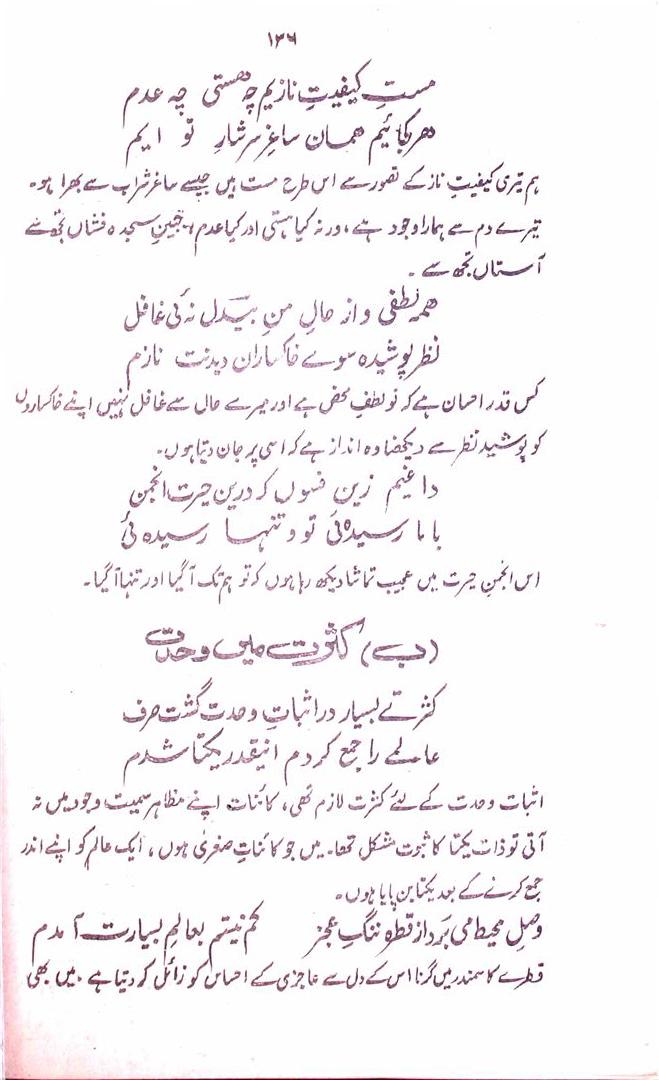 ۱۳۶
مستِ کیفیتِ نازیم چہ هستی چہ عدم
هر کجائیم همان ساغرِ سرشارِ تو ایم
ہم تیری کیفیتِ ناز کے تصور سے اس طرح مست ہیں جیسے ساغر شراب سے بھرا ہو۔
تیرے دم سے ہمارا وجود ہے، ورنہ کیا ہستی اور کیا عدم، جبینِ سجدہ فشاں تجھ سے
آستاں تجھ سے ۔
همہ لطفی و از حالِ منِ بیدل نۂ ئی غافل
نظر پوشیدہ سوے خاکساران دیدنت نازم
کس قدر احسان ہے کہ تو لطفِ محض ہے اور میرے حال سے غافل نہیں اپنے خاکساروں
کو پوشیدہ نظر سے دیکھنا وہ انداز ہے کہ اسی پر جان دیتا ہوں۔
داغیم زین فسوں کہ درین حیرت انجمن
با ما رسیدۂ ئی تو و تنہا رسیدہ ئی
اس انجمنِ حیرت میں عجیب تماشا دیکھ رہا ہوں کہ تو ہم تک آ گیا اور تنہا آ گیا۔
(ب) کثرت میں وحدت
کثرتے بسیار در اثباتِ وحدت گشت صرف
عالمے را جمع کردم اینقدر یکتا شدم
اثبات وحدت کے لئے کثرت لازم تھی، کائنات اپنے مظاہر سمیت وجود میں نہ
آتی تو ذات یکتا کا ثبوت مشکل تھا۔ میں جو کائناتِ صغریٰ ہوں، ایک عالم کو اپنے اندر
جمع کرنے کے بعد یکتا بن پایا ہوں۔
وصلِ محیط می بَرد از قطرہ ننگِ عجز کم نیستم بعالمِ بسیارت آمدم
قطرے کا سمندر میں گرنا اس کے دل سے عاجزی کے احساس کو زائل کر دیتا ہے ۔ میں بھی